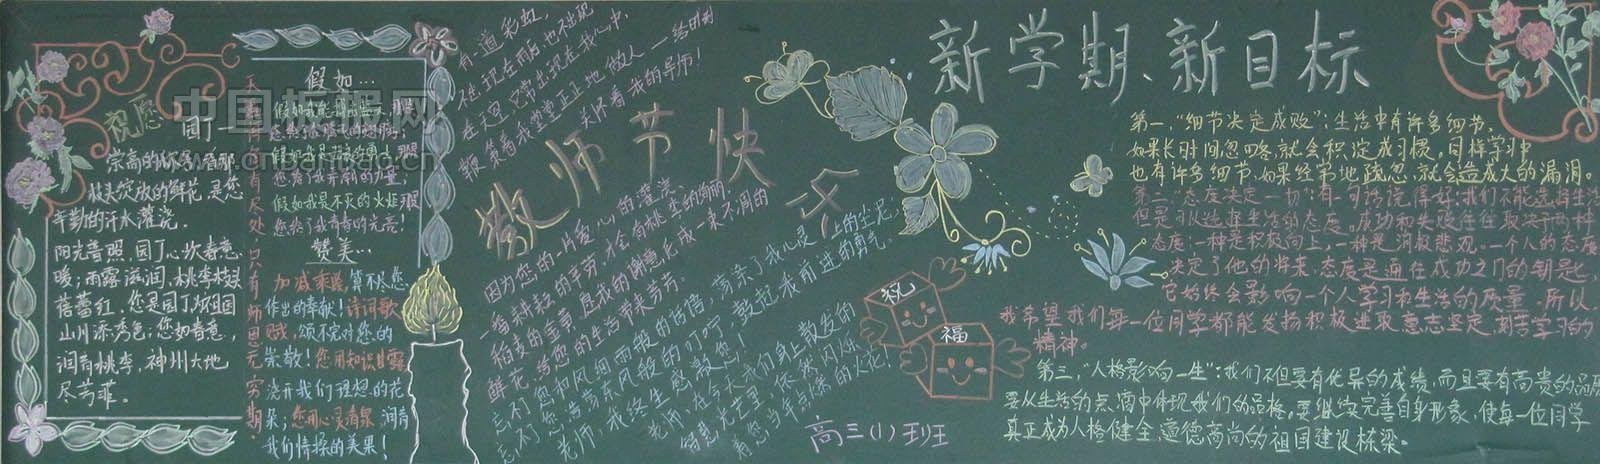 祝愿 园丁
崇高的
枝头绽放的鲜花,是您
辛勤的汗水灌浇。
阳光普照,园丁心坎春意
暖;雨露滋润,桃李枝头
蓓蕾红。您是园丁,为祖国
山川添秀色;您如春意,
润育桃李,神州大地
尽芳菲。
有尽处,只有师恩无穷期。
假如…
您给了我
假如我是不灭的火炬
您给了我青春的光亮!
赞美…
加减乘除,算不尽您
作出的奉献!诗词歌
赋,颂不完对您的
崇敬!您用知识甘露,
浇开我们理想的花
朵;您用心灵清泉,润育
我们情操的美果!
有道彩虹,
不在现在雨后,也不出现
在天空,它常出现在我心中,
鞭策着我堂堂正正地做人——给时刻
关怀着我的导师!
教师节快乐
因为您的一片爱心的灌浇,
一番耕耘的辛劳,才会有桃李的绚丽,
稻麦的金黄。愿我的谢意形成一束不凋的
鲜花,给您的生活带来芳芳。
忘不了您和风细雨般的话语,荡涤了我心灵上的尘泥;
忘不了您浩荡东风般的叮咛,鼓起我前进的勇气。
老师,我终生感激您!
老师,在今天我们身上散发的
智慧光芒里,依然闪烁
着您当年点燃的火花!
祝
福
高三(1)班
新学期、新目标
第一,“细节决定成败”:生活中有许多细节,
如果长时间忽略,就会积淀成习惯,同样学习中
也有许多细节,如果经常地疏忽,就会造成大的漏洞。
第二,“态度决定一切”有一句话说得好:我们不能选择生活
但是可以选择生活的态度。成功和失败往往取决于两种
态度:一种是积极向上,一种是消极悲观,一个人的态度
决定了他的将来,态度是通往成功之门的钥匙,
它始终会影响一个人学习和生活的质量,所以,
我希望我们每一位同学都能发扬积极进取,意志坚定,刻苦学习的
精神。
第三,“人格影响一生”:我们不但要有优异的成绩,而且要有高贵的品质
要从生活的点滴中体现我们的品格,要继续完善自身形象,使每一位同学
真正成为人格健全、道德高尚的祖国建设栋梁。
中国板报网